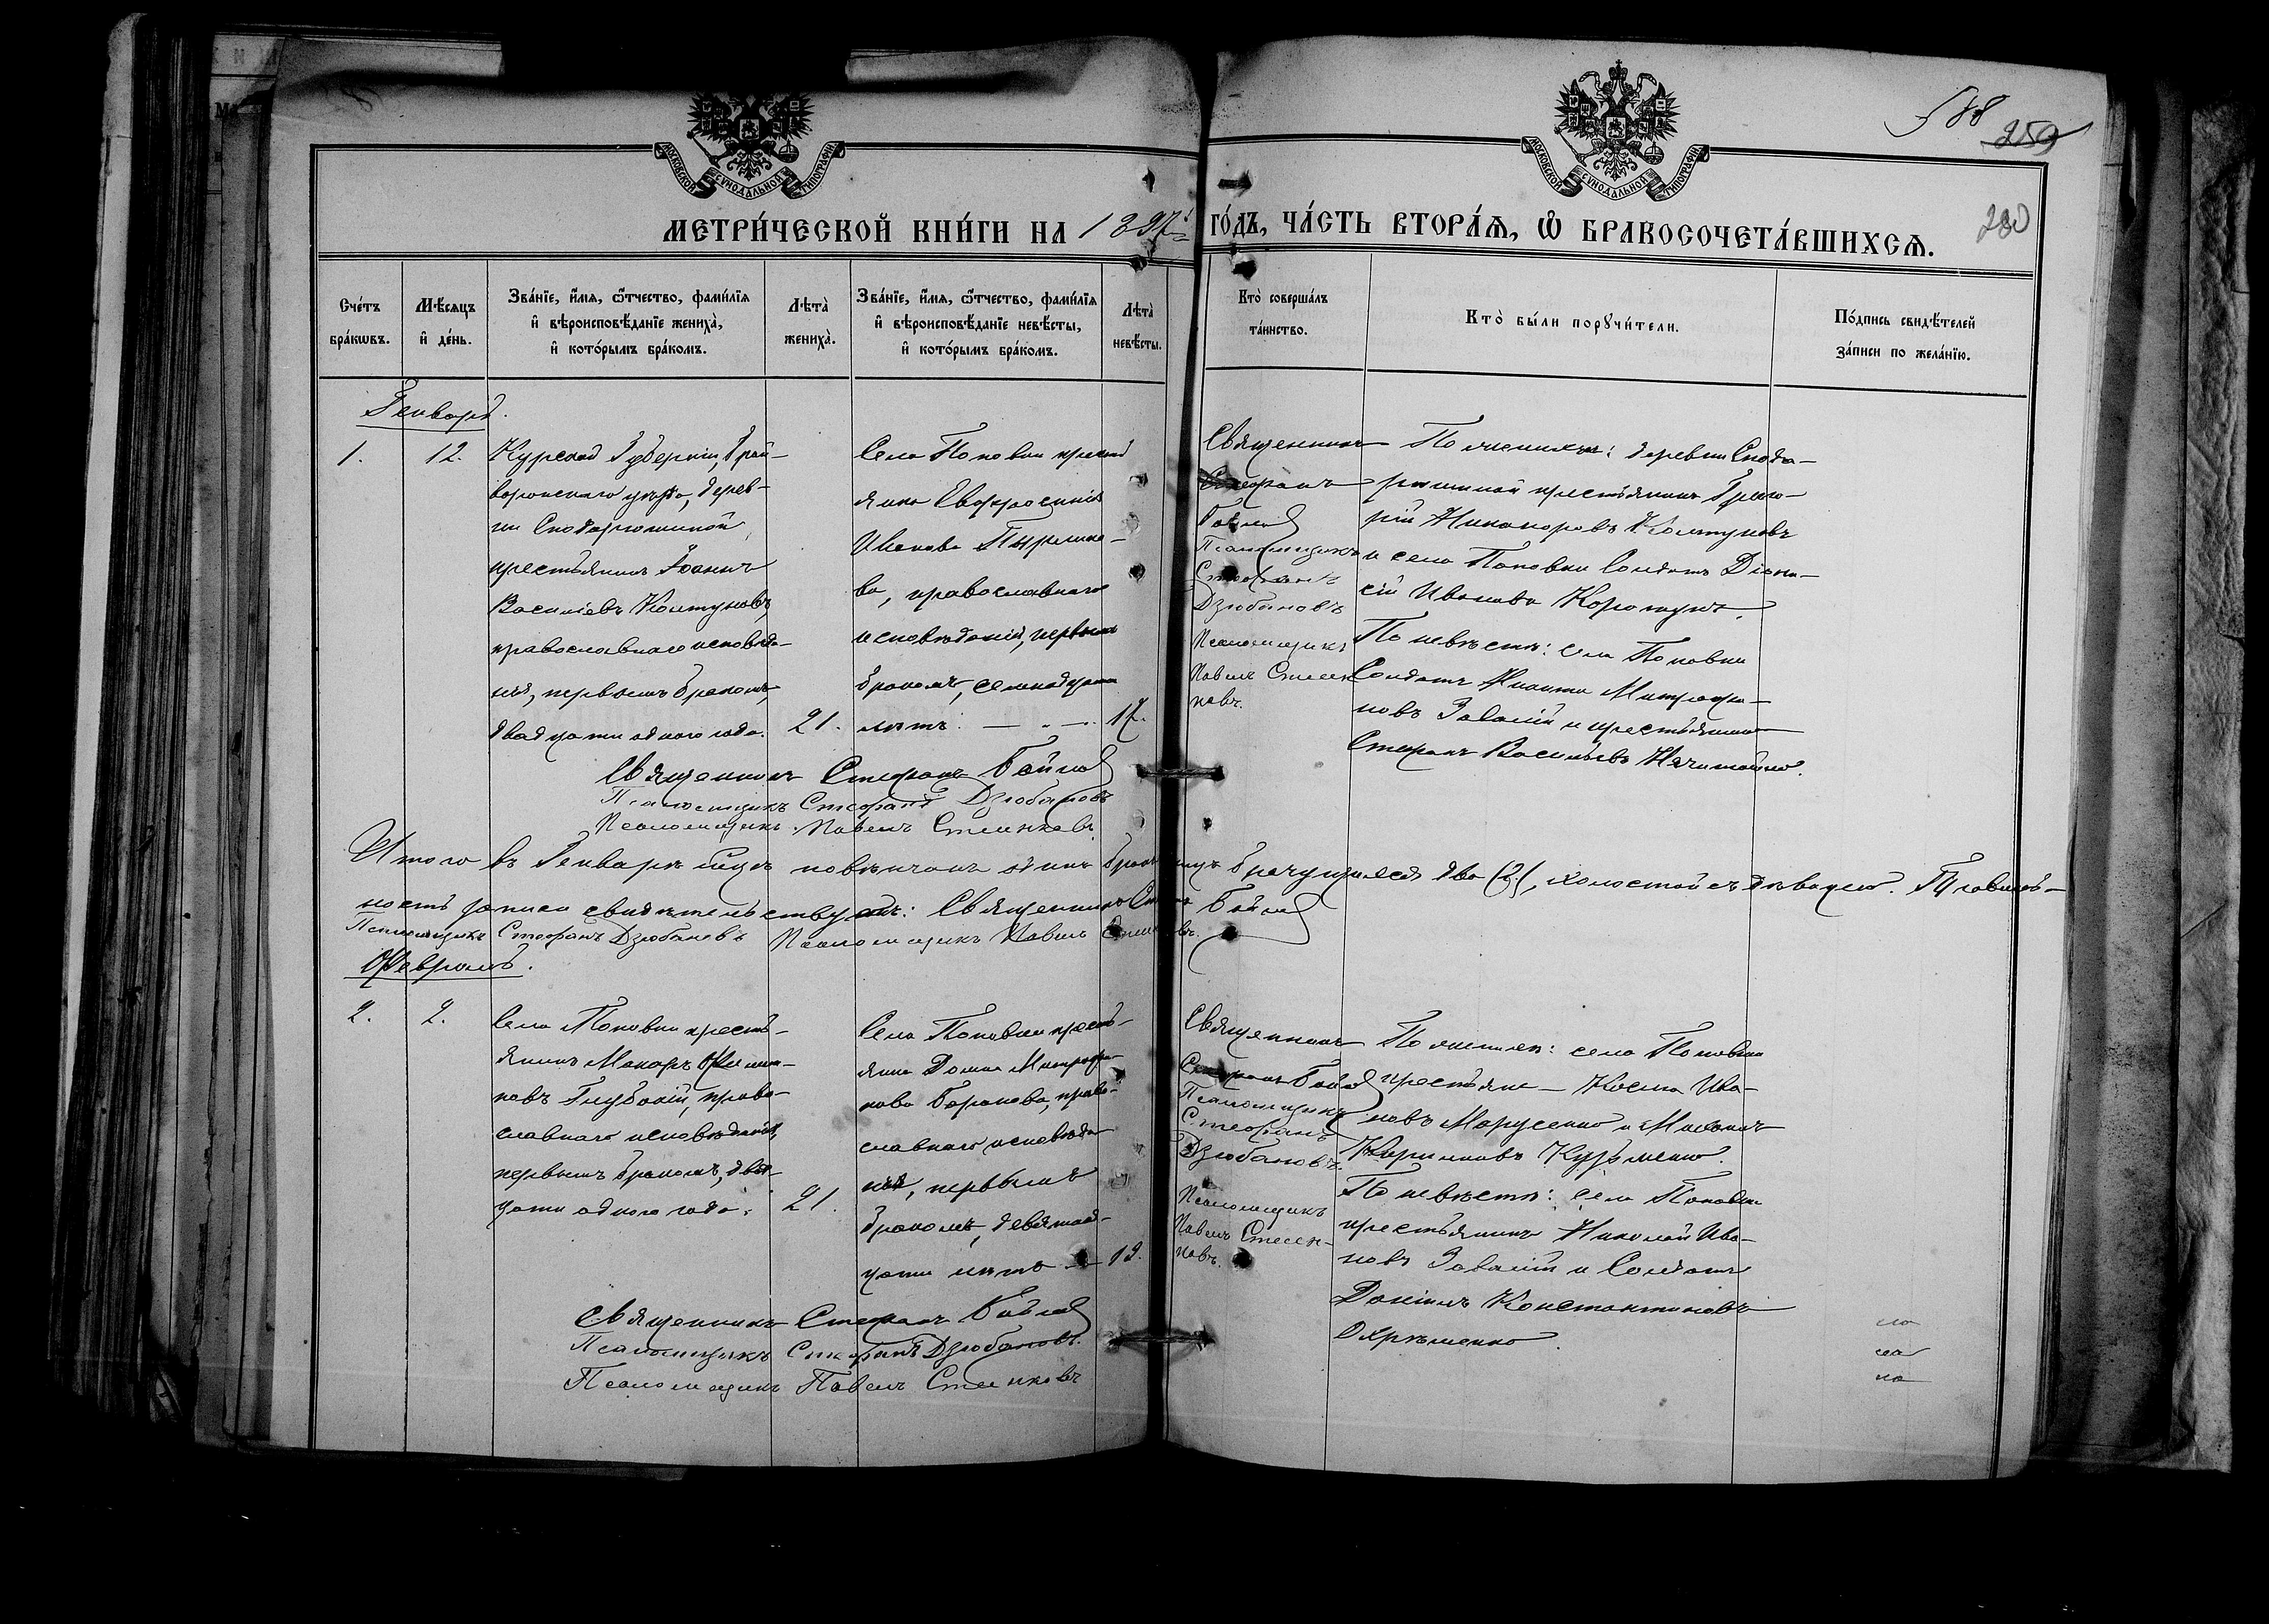 588
259
280
МОСКОВСКОЙ СУНОДАЛЬНОЙ ТИПОГРАФІИ
МОСКОВСКОЙ СУНОДАЛЬНОЙ ТИПОГРАФІИ
МЕТРИ́ЧЕСКОЙ КНИ́ГИ НА 1897й ГО́ДЪ, ЧА́СТЬ ВТОРА́Ѧ, Ѡ БРАКОСОЧЕТА́ВШИХСѦ.
Сче́тъ бра́кѡвъ.
Мѣ́сяцъ и де́нь.
Зва́нїе, и́мя, ѻ́тчество, фами́лїя и вѣроисповѣ́данїе жениха̀, и кото́рымъ бра́комъ.
Лѣта̀ жениха̀.
Зва́нїе, и́мя, ѻ́тчество, фами́лїя и вѣроисповѣ́данїе невѣ́сты, и кото́рымъ бра́комъ.
Лѣта̀ невѣ́сты.
Кто̀ соверша́лъ та́инство.
Кто̀ бы́ли порꙋчи́тели.
По́дпись свидѣ́телей за́писи по жела́нїю.
Генварь.
1.
12.
Курской Губерніи, Грай-
воронскаго уѣзда, дерев-
ни Сподарюшиной
крестьянинъ Іоаннъ
Василіевъ Колтуновъ,
православнаго исповѣда-
нія, первымъ бракомъ,
двадцати одного года.
21.
Села Поповки кресть
янка Евфросинія
Иванова
ва, православнаго
исповѣданія, первымъ
бракомъ, семнадцати
лѣтъ. —
17.
Священникъ
Стефанъ
Псаломщикъ
Стефанъ
Дзюбановъ
Псаломщикъ
Павелъ
По женихѣ: деревни Спода-
рюшиной крестьянинъ Григо-
рій Никаноровъ Колтуновъ
и села Поповки Солдатъ Діони-
сій Ивановъ Коротунъ.
По невѣстѣ: села Поповки
Солдатъ Никита Митрофа-
новъ и крестьянинъ
Стефанъ Васильевъ
Священникъ Стефанъ
Псаломщикъ Стефанъ Дзюбановъ
Псаломщикъ Павелъ
Итого въ Генварѣ мѣсяцѣ повѣнчанъ одинъ бракъ, лицъ брачущихся два (2), холостой съ дѣвицею. Правиль-
ность записи свидѣтельствуютъ: Священникъ
Псаломщикъ Стефанъ Дзюбановъ Псаломщикъ Павелъ
Февраль.
2.
2.
Села Поповки кресть-
янинъ Макаръ Филип-
повъ Глубокій, право-
славнаго исповѣданія,
первымъ бракомъ, двад-
цати одного года.
21.
Села Поповки кресть-
янка Домна Митрофа-
нова Баранова, право-
славнаго исповѣда-
нія, первымъ
бракомъ, девятнад-
цати лѣтъ —
19.
Священникъ
Стефанъ
Псаломщикъ
Стефанъ
Дзюбановъ.
Псаломщикъ
Павелъ
По женихѣ: села Поповки
крестьяне — Косма Ива-
новъ Марусенко и
Кирилловъ Кузьменко.
По невѣстѣ: села Поповки
крестьянинъ Николай Ива-
новъ и Солдатъ
Даніилъ Константиновъ
Охрѣменко.
Священникъ Стефанъ
Псаломщикъ Стефанъ Дзюбановъ.
Псаломщикъ Павелъ